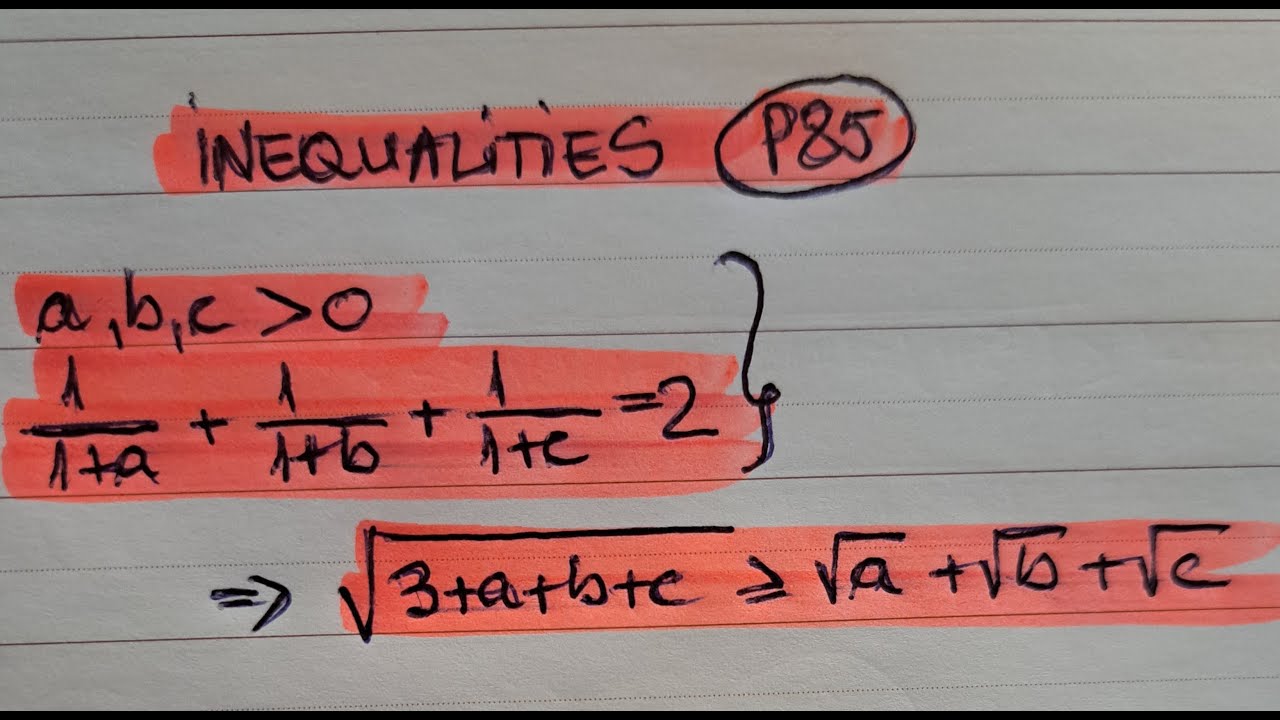 INEQUALITIES P85
a,b,c >0
1/(1+a) + 1/(1+b) + 1/(1+c) =2
⇒ √(3+a+b+c) ≥ √a +√b +√c